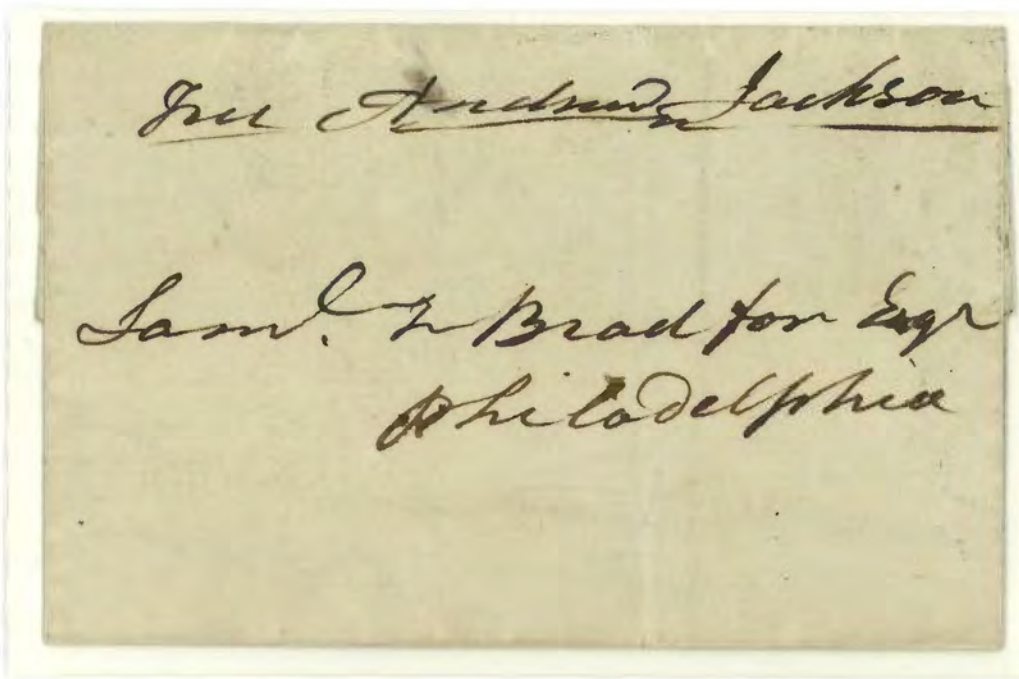 Free Andrew Jackson
Saml. F Bradfor Esqr
Philadelphia